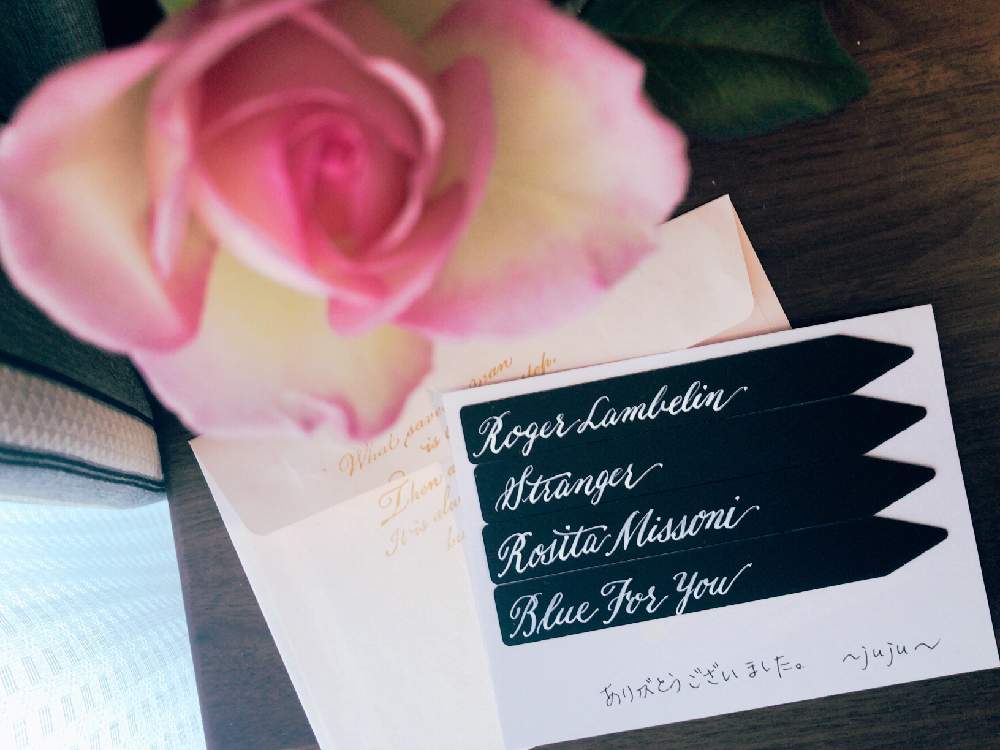 What save
is
Then a
It is
Roger Lambelin
Stranger
Rosita Missoni
Blue For You
ありがとうございました。 ~juju~